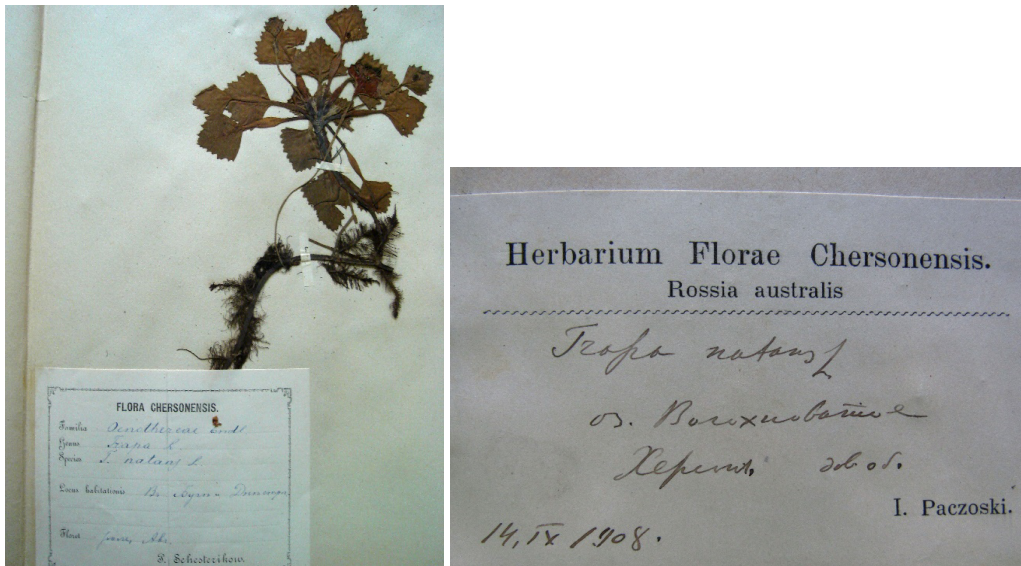 FLORA CHERSONENSIS.
Familia Oenothereae Endl
Genus Trapa L.
Species T. natans L.
Locus habitationis
Floret
P. Schesterikow.
Herbarium Florae Chersonensis.
Rossia australis
Trapa natans L
оз.
Херсон.
I. Paczoski.
14, IX 1908.